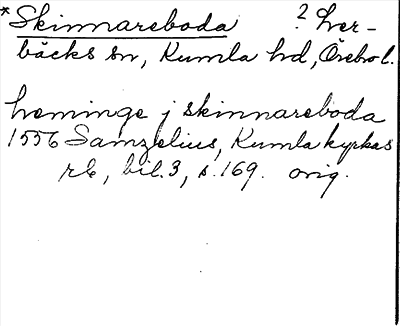 *Skinnareboda ? Kver-
bäcks sn, Kumla hd, Örebro l.
heminge j skinnareboda
1556 Samzelius, Kumla kyrkas
rb, bil. 3, s. 169. orig.